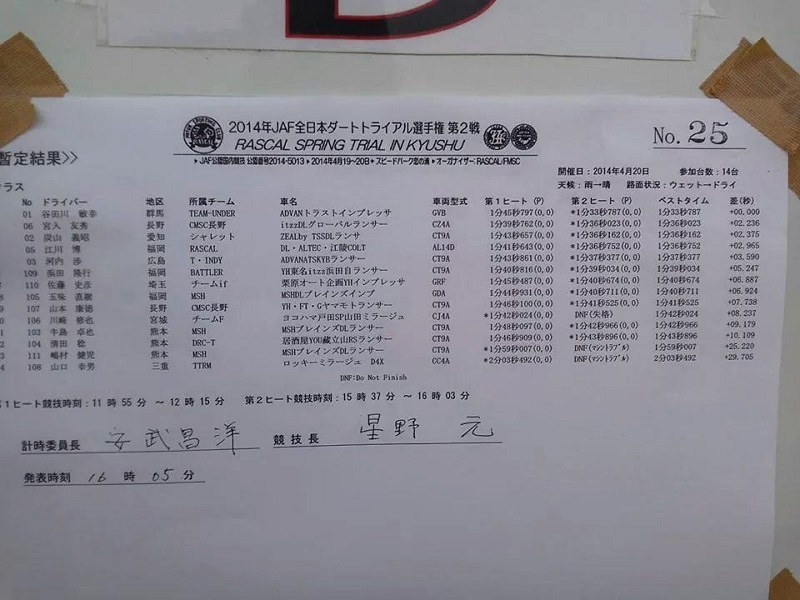 2014年JAF全日本ダートトライアル選手権 第2戦
RASCAL SPRING TRIAL IN KYUSHU
▶JAF公認国内競技 公認番号2014-5013 ▶2014年4月19～20日▶スピードパーク恋の浦▶オーガナイザー:RASCAL/FMSC
No. 25
暫定結果>>
開催日：2014年4月20日 参加台数：14台
クラス
天候：雨→晴 路面状況：ウェット→ドライ
No ドライバー 地区 所属チーム 車名 車両型式 第1ヒート (P) 第2ヒート (P) ベストタイム 差(秒)
01 谷田川 敏幸 群馬 TEAM-UNDER ADVANトラストインプレッサ GVB 1分45秒797(0,0) *1分33秒787(0,0) 1分33秒787 +00.000
06 宮入 友秀 長野 CMSC長野 itzzDLグローバルランサー CZ4A 1分39秒762(0,0) *1分36秒023(0,0) 1分36秒023 +02.236
02 炭山 義昭 愛知 シャレット ZEALby TSSDLランサ CT9A 1分43秒657(0,0) *1分36秒162(0,0) 1分36秒162 +02.375
05 江川 博 福岡 RASCAL DL・ALTEC・江陵COLT AL14D 1分41秒643(0,0) *1分36秒752(0,0) 1分36秒752 +02.965
03 河内 渉 広島 T・INDY ADVANATSKYBランサー CT9A 1分43秒861(0,0) *1分37秒377(0,0) 1分37秒377 +03.590
109 浜田 隆行 福岡 BATTLER YH東名itzz浜田自ランサー CT9A 1分40秒816(0,0) *1分39秒034(0,0) 1分39秒034 +05.247
110 佐藤 史彦 埼玉 チームif 栗原オート企画YHインプレッサ GRF 1分45秒487(0,0) *1分40秒674(0,0) 1分40秒674 +06.887
105 五味 直樹 福岡 MSH MSHDLブレインズインプ GDA 1分44秒931(0,0) *1分40秒711(0,0) 1分40秒711 +06.924
107 山本 康徳 長野 CMSC長野 YH・FT・Gヤマモトランサー CT9A 1分46秒100(0,0) *1分41秒525(0,0) 1分41秒525 +07.738
106 川崎 修也 宮城 チームF ヨコハマ戸田SP山田ミラージュ CJ4A *1分42秒024(0,0) DNF(失格) 1分42秒024 +08.237
103 牛島 卓也 熊本 MSH MSHブレインズDLランサー CT9A 1分46秒169(0,0) *1分42秒966(0,0) 1分42秒966 +09.179
104 清田 稔 熊本 DRC-T 居酒屋YOU蔵立山RSランサー CT9A 1分46秒909(0,0) *1分43秒896(0,0) 1分43秒896 +10.109
111 嶋村 健児 熊本 MSH MSHブレインズDLランサー CT9A *1分59秒007(0,0) DNF(マシントラブル) 1分59秒007 +25.220
108 山口 幸男 三重 TTRM ロッキーミラージュ D4X CC4A *2分03秒492(0,0) DNF(マシントラブル) 2分03秒492 +29.705
DNF:Do Not Finish
第1ヒート競技時刻：11 時 55 分 ～ 12 時 15 分 第2ヒート競技時刻：15 時 37 分 ～ 16 時 03 分
計時委員長 安武昌洋 競技長 星野 元
発表時刻 16 時 05 分